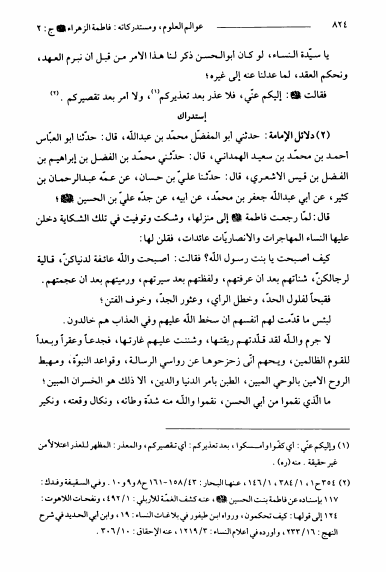 ٨٢٤ عوالم العلوم، ومستدركاته : فاطمة الزهراء ﷺ ج : ٢
يا سيّدة النساء، لو كان أبوالحسن ذكر لنا هذا الأمر من قبل أن نبرم العهد،
ونحكم العقد، لما عدلنا عنه إلى غيره؛
فقالت ﷺ : إليكم عنّي، فلا عذر بعد تعذيركم(١)، ولا أمر بعد تقصيركم . (٢)
إستدراك
(٢) دلائل الإمامة: حدثني أبو المفضّل محمّد بن عبدالله، قال: حدّثنا أبو العبّاس
أحمد بن محمّد بن سعيد الهمداني، قال: حدّثني محمّد بن الفضل بن إبراهيم بن
الفضل بن قيس الأشعري، قال: حدّثنا عليّ بن حسان، عن عمّه عبدالرحمان بن
كثير، عن أبي عبدالله جعفر بن محمّد، عن أبيه، عن جدّه عليّ بن الحسين ﷺ؛
قال: لمّا رجعت فاطمة ﷺ إلى منزلها، وشكت وتوفيت في تلك الشكاية دخلن
عليها النساء المهاجرات والأنصاريّات عائدات، فقلن لها:
كيف أصبحت يا بنت رسول الله؟ فقالت: أصبحت والله عائفة لدنياكنّ، قالية
لرجالكنّ، شنأتهم بعد أن عرفتهم، ولفظتهم بعد سيرتهم، ورميتهم بعد أن عجمتهم.
فقبحاً لفلول الحدّ، وخطل الرأي، وعثور الجدّ، وخوف الفتن؛
لبئس ما قدّمت لهم أنفسهم أن سخط الله عليهم وفي العذاب هم خالدون.
لا جرم والله لقد قلّدتهم ربقتها، وشننت عليهم غارتها، فجدعاً وعقراً وبعداً
للقوم الظالمين، ويحهم أنّى زحزحوها عن رواسي الرسالة، وقواعد النبوّة، ومهبط
الروح الأمين بالوحي المبين، الطبن بأمر الدنيا والدين، ألا ذلك هو الخسران المبين؛
ما الّذي نقموا من أبي الحسن، نقموا والله منه شدّة وطأته، ونكال وقعته، ونكير
(١) وإليكم عنّي : أي كفّوا وأمسكوا، بعد تعذيركم: أي تقصيركم، والمعذر: المظهر للعذر اعتلالاً من
غير حقيقة . منه (ره) .
(٢) ٣٥٤ ح١، ٣٨٤/١، ١٤٦/١، عنها البحار: ١٥٨/٤٣-١٦١ ح٨ و٩ و١٠. وفي السقيفة وفدك:
١١٧ بإسناده عن فاطمة بنت الحسين ﷺ، عنه كشف الغمّة للأربلي: ٤٩٢/١، ونفحات اللاهوت:
١٢٤ إلى قولها: كيف تحكمون، ورواه ابن طيفور في بلاغات النساء: ١٩، وابن أبي الحديد في شرح
النهج: ٢٣٣/١٦، وأورده في أعلام النساء: ١٢١٩/٣، عنه الإحقاق: ٣٠٦/١٠ .